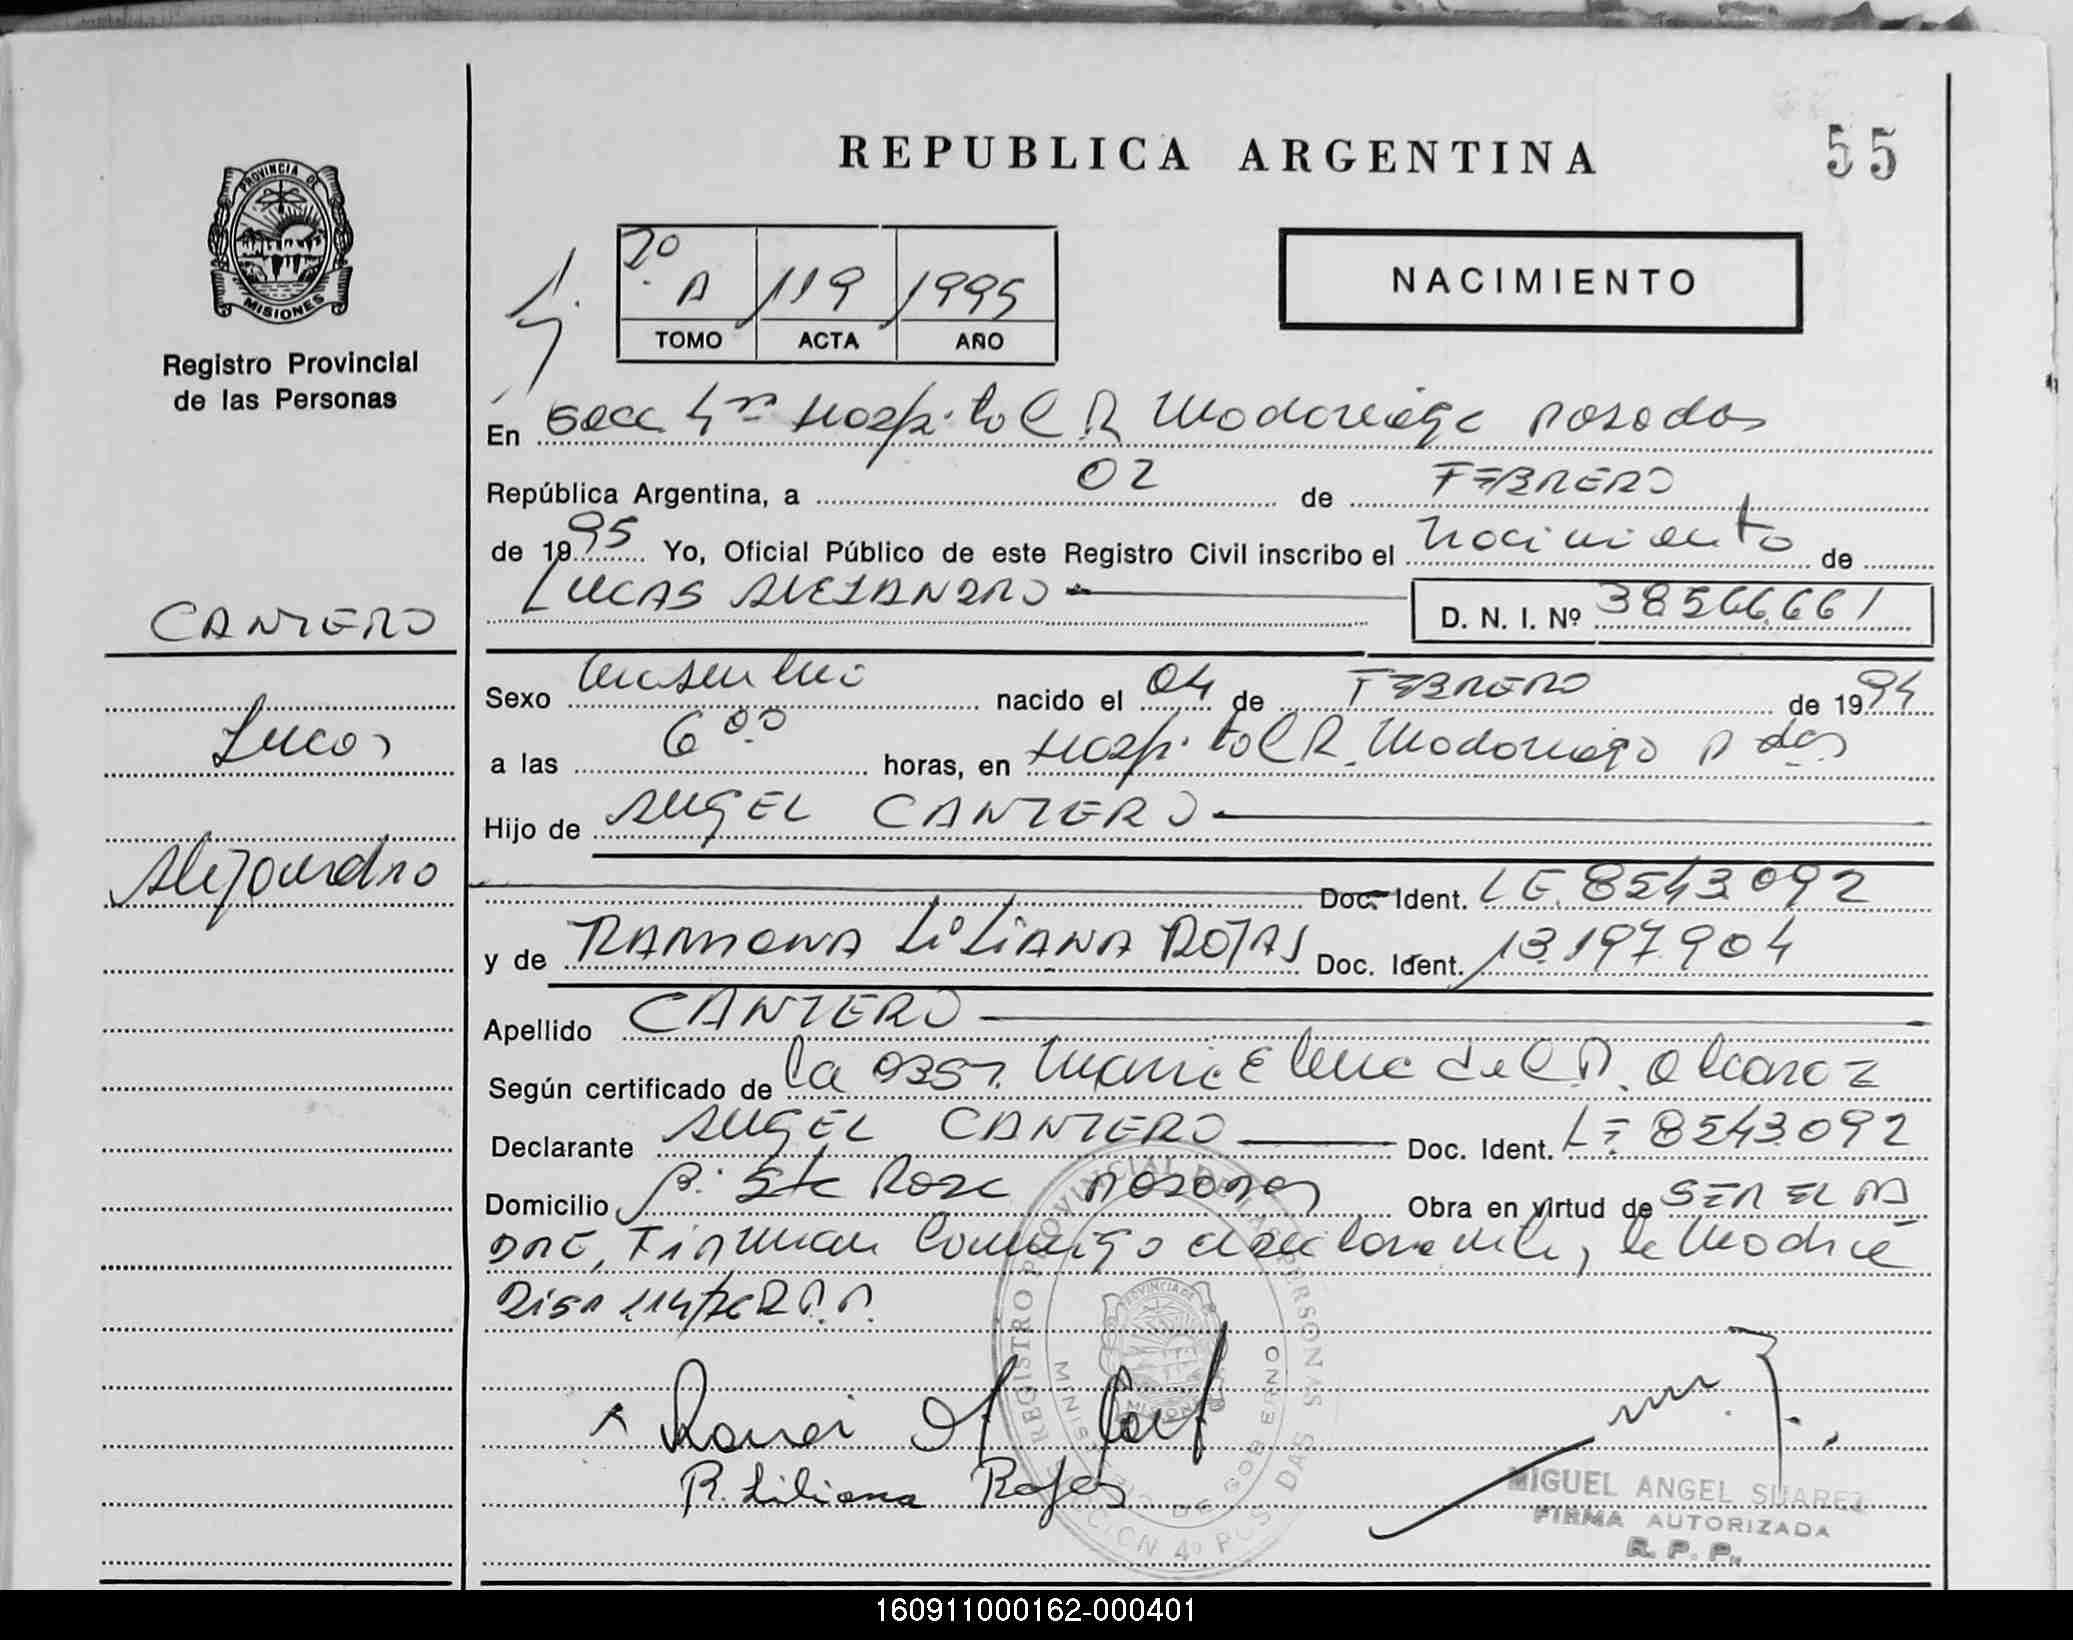 REPUBLICA ARGENTINA
55
PROVINCIA DE
MISIONES
Registro Provincial
de las Personas
2º A 119 1995
TOMO ACTA AÑO
NACIMIENTO
En Secc 4ª Hospital R Madariaga Posadas
República Argentina, a 02 de FEBRERO
de 1995 Yo, Oficial Público de este Registro Civil inscribo el nacimiento de
LUCAS ALEJANDRO D. N. I. Nº 38566.661
CANTERO
Lucas
Alejandro
Sexo masculino nacido el 04 de FEBRERO de 1994
a las 6 00 horas, en Hospital R. Madariaga Pdas
Hijo de ANGEL CANTERO
Doc. Ident. LE. 8543.092
y de RAMONA LILIANA ROJAS Doc. Ident. 13.197.904
Apellido CANTERO
Según certificado de la Obst. Maria Elena del P. Alcaraz
Declarante ANGEL CANTERO Doc. Ident. LE 8543.092
Domicilio B. Sta Rosa Posadas Obra en virtud de SER EL PA
DRE, Firman conmigo el declarante, la madre
REGISTRO PROVINCIAL DE LAS PERSONAS
MINISTERIO DE GOBIERNO
PROVINCIA DE
MISIONES
R. Liliana Rojas
MIGUEL ANGEL SUAREZ
FIRMA AUTORIZADA
R. P. P.
160911000162-000401